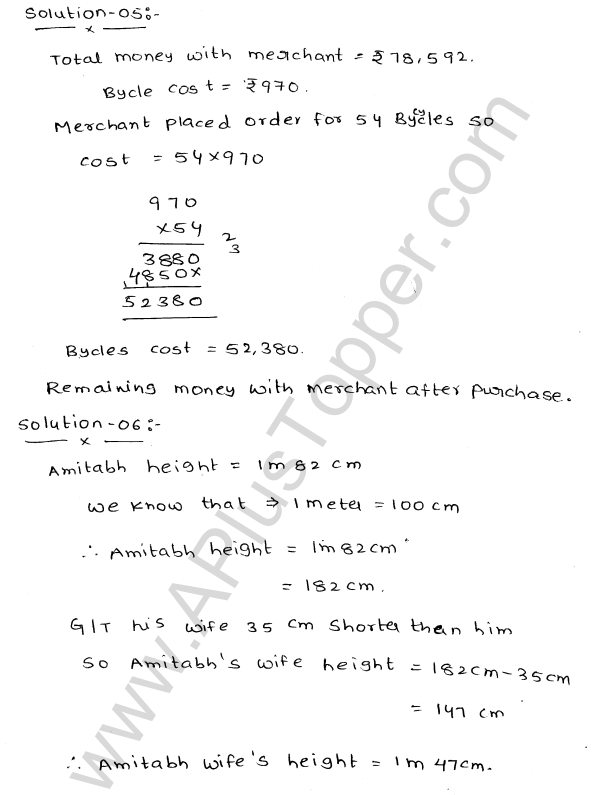 Solution-05:-
x
Total money with merchant = ₹78,592.
Bycle cost = ₹970.
Merchant placed order for 54 Bycycles so
cost = 54×970
970
×54
3880 2
4850× 3
52380
Bycles cost = 52,380.
Remaining money with merchant after purchase.
Solution-06:-
x
Amitabh height = 1m 82 cm
we know that ⇒ 1 meter = 100 cm
∴ Amitabh height = 1m 82cm
= 182cm.
GIT his wife 35 cm shorter than him
So Amitabh's wife height = 182cm-35cm
= 147 cm
∴ Amitabh wife's height = 1m 47cm.
www.APlusTopper.com